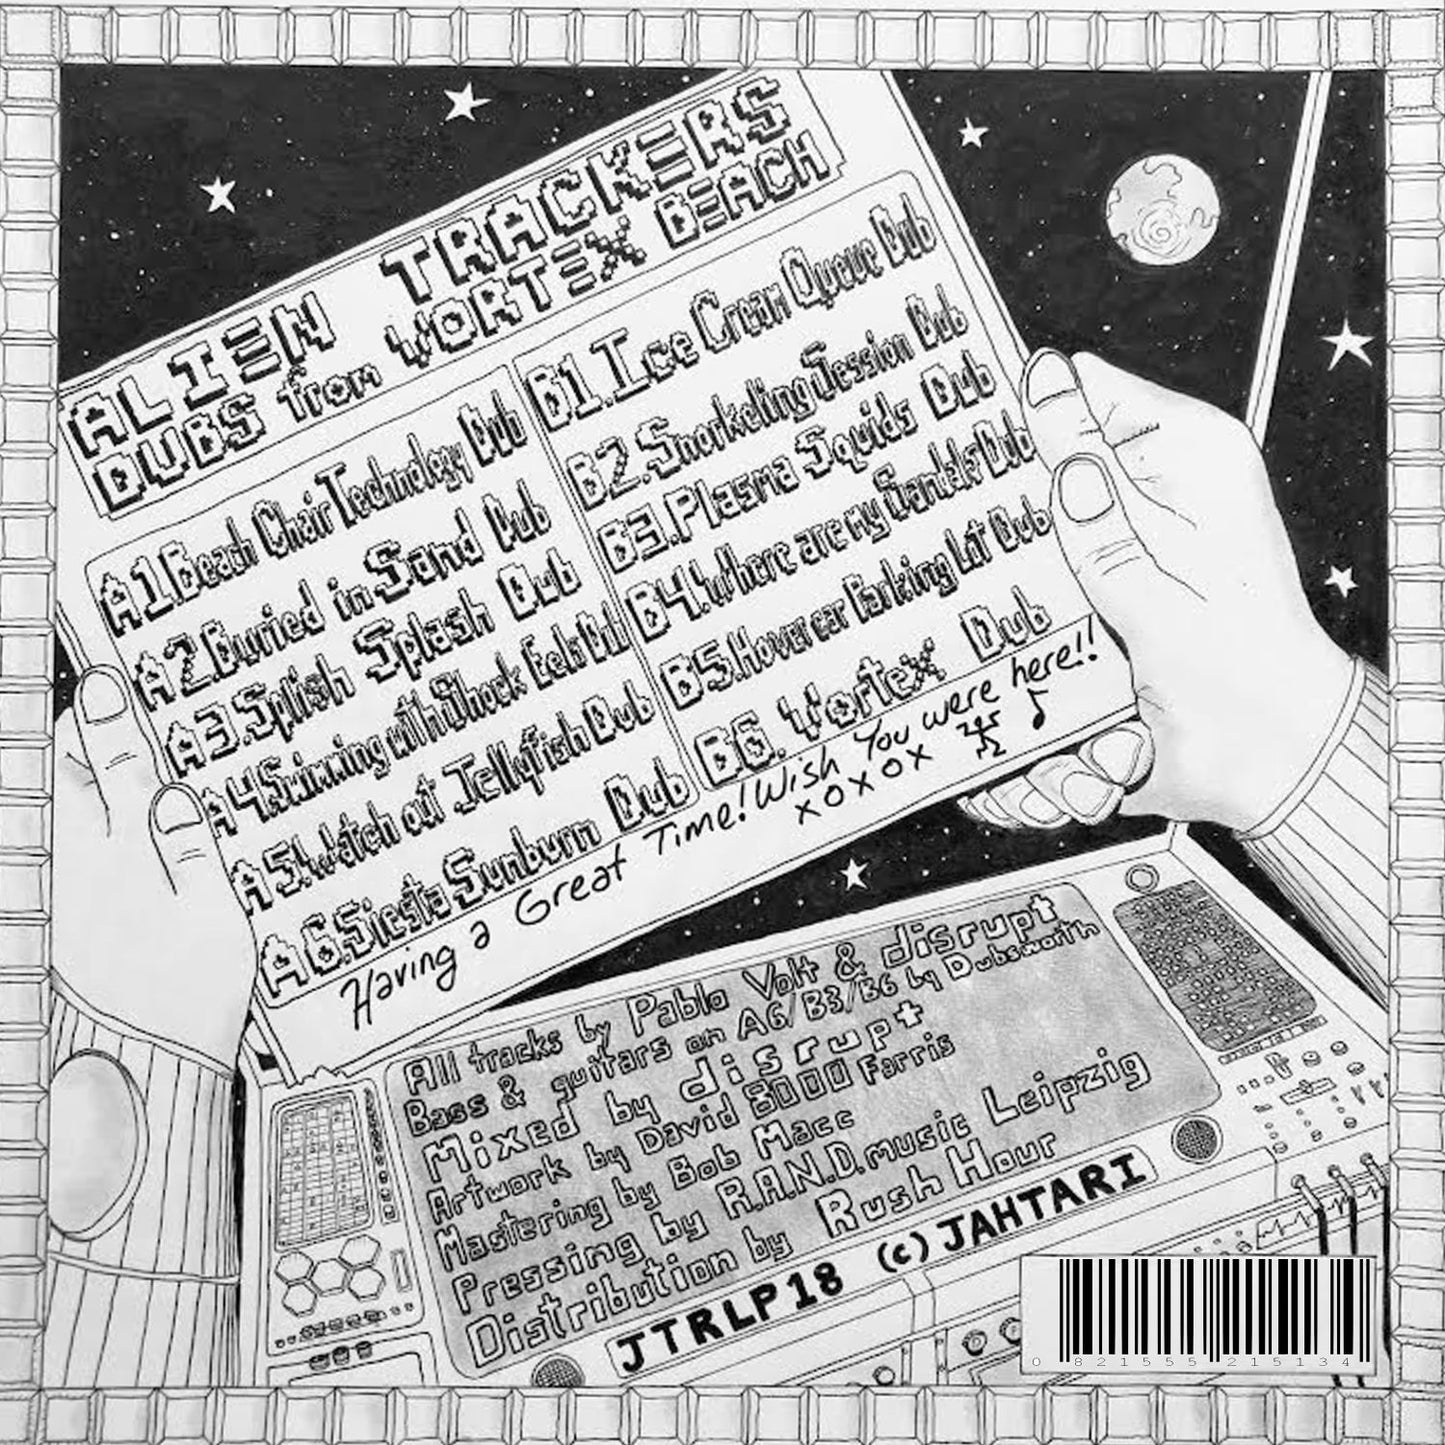 ALIEN TRACKERS
DUBS from VORTEX BEACH
A1.Beach Chair Technology Dub
A2.Buried in Sand Dub
A3.Splish Splash Dub
A4.Swimming with Shock Eels Dub
A5.Watch out Jellyfish Dub
A6.Siesta Sunburn Dub
B1.Ice Cream Queue Dub
B2.Snorkeling Session Dub
B3.Plasma Squids Dub
B4.Where are my Sandals Dub
B5.Hover car Parking Lot Dub
B6.Vortex Dub
Having a Great Time! Wish You were here!!
xoxox
All tracks by Pablo Volt & disrupt
Bass & guitars on A6/B3/B6 by Dubsworth
Mixed by disrupt
Artwork by David 8000 Farris
Mastering by Bob Macc
Pressing by R.A.N.D.music Leipzig
Distribution by Rush Hour
JTRLP18 (c) JAHTARI
0 821555 215134